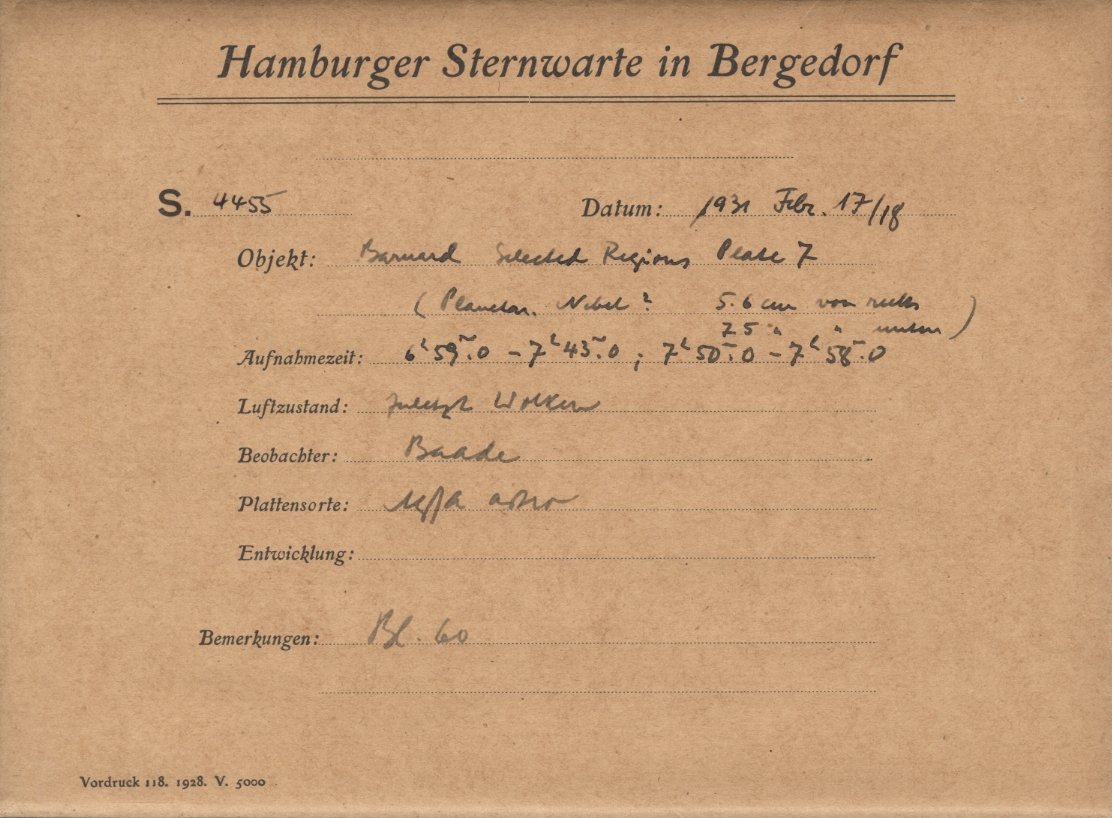 Hamburger Sternwarte in Bergedorf
S. 4455 Datum: 1931 Febr. 17/18
Objekt: Barnard Selected Regions Plate 7
(Planetar. Nebel? 5.6 cm von rechts
7.5 " " unten)
Aufnahmezeit: 6ʰ59ᵐ.0 – 7ʰ43ᵐ.0 ; 7ʰ50ᵐ.0 – 7ʰ58ᵐ.0
Luftzustand: zuletzt Wolken
Beobachter: Baade
Plattensorte: Agfa astro
Entwicklung:
Bemerkungen: Bl. 60
Vordruck 118. 1928. V. 5000